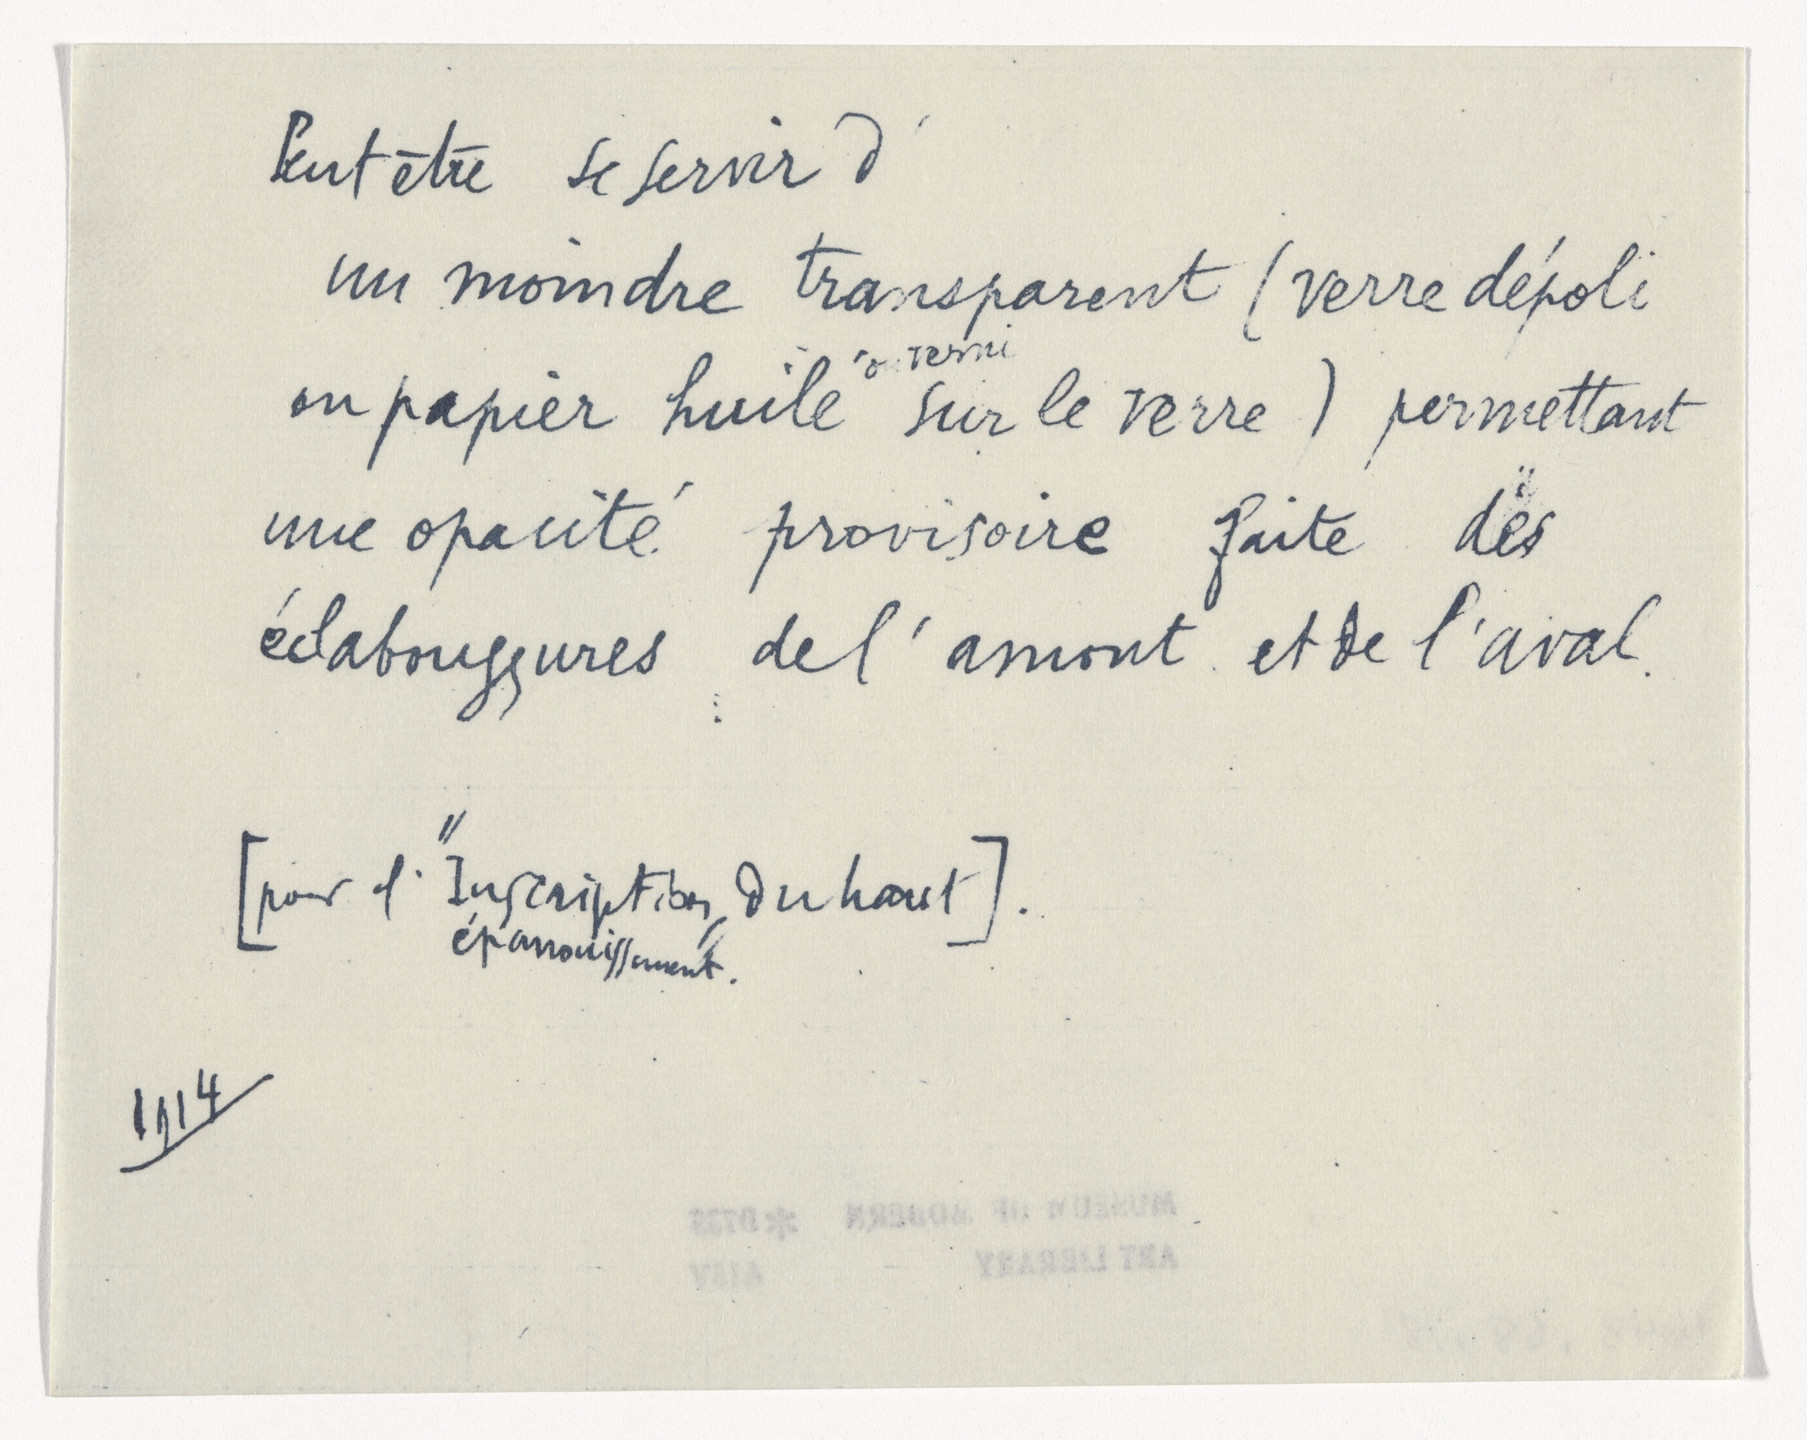 Peut être se servir d'
un moindre transparent (verre dépoli
ou verni
ou papier huilé sur le verre) permettant
une opacité provisoire faite des
éclaboussures de l'amont et de l'aval.
[pour l'"Inscription du haut].
épanouissement.
1914
MUSEUM OF MODERN
ART LIBRARY